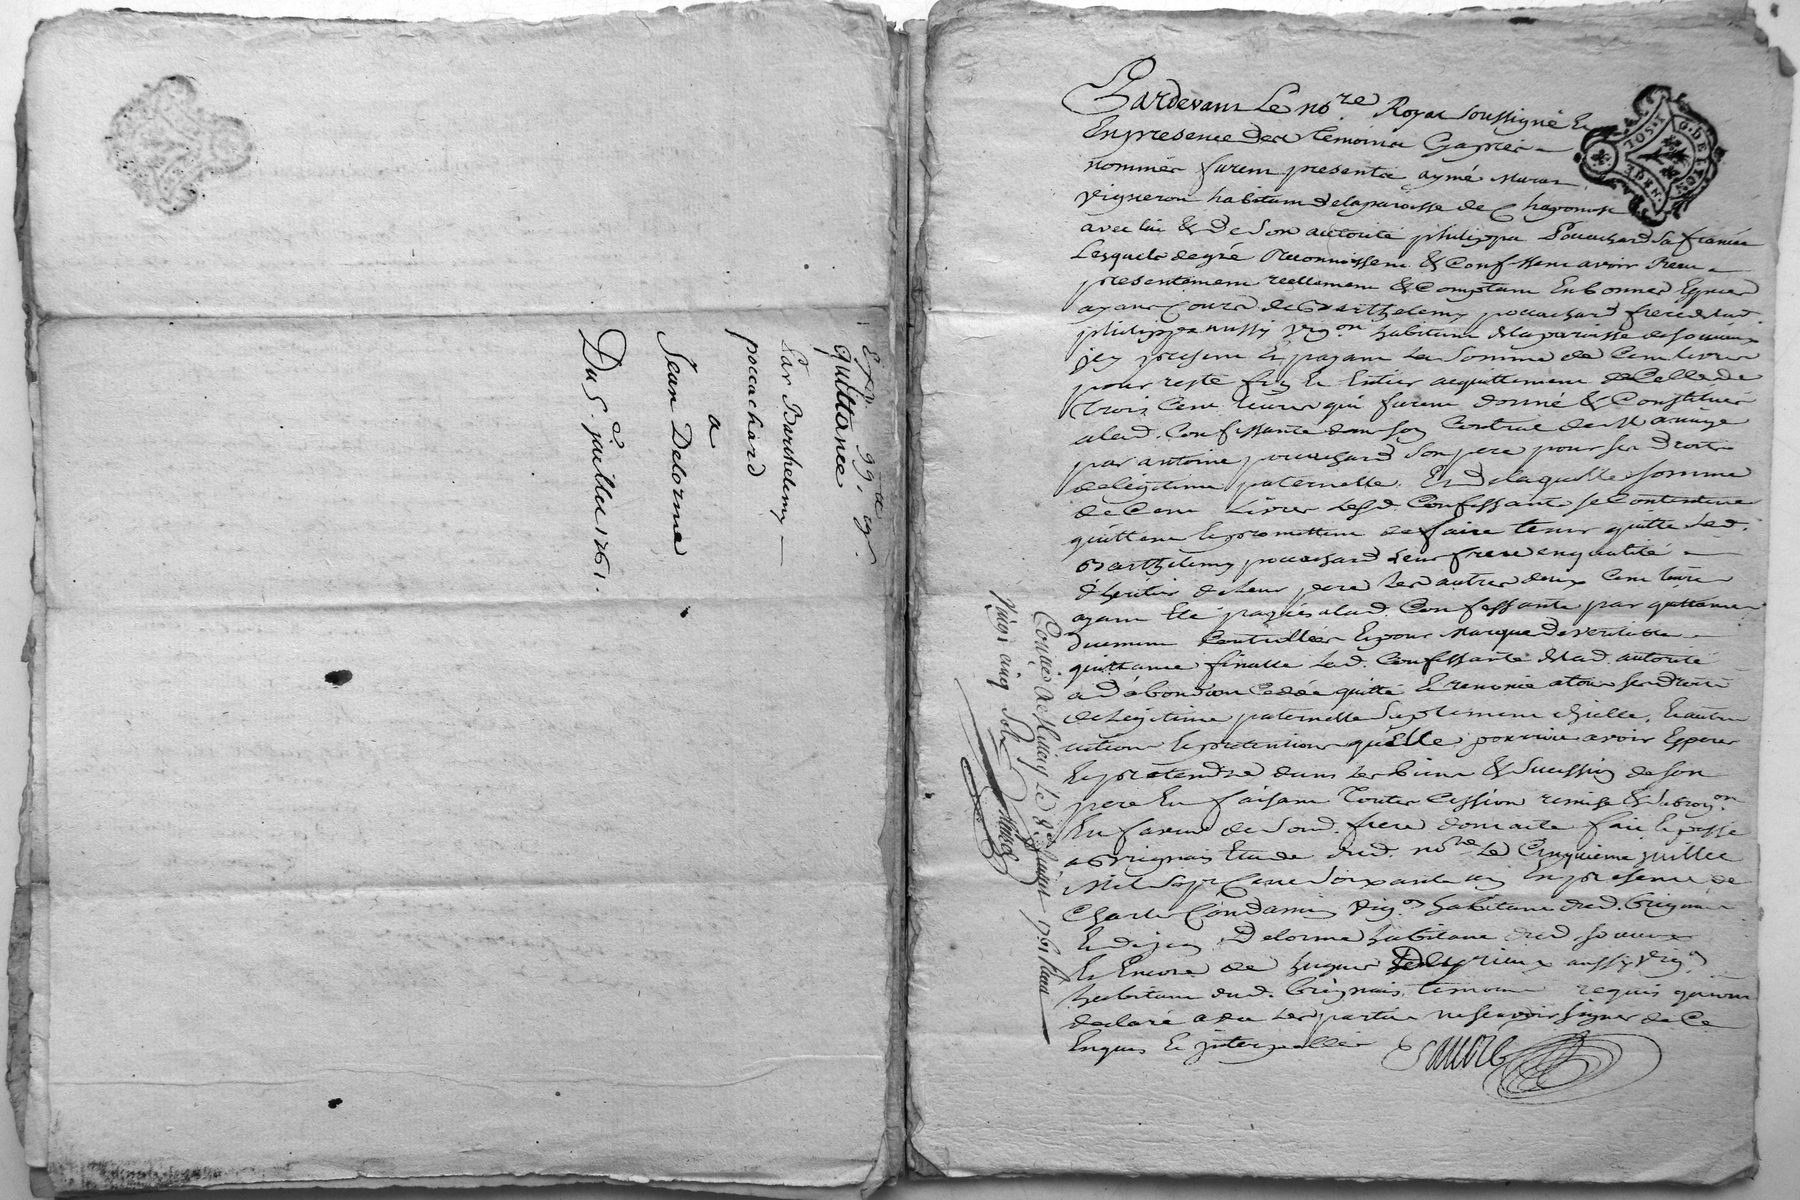 Quittance
Par Barthelemy
pouachard
a
Jean Delorme
Du 5.e juillet 1761.
Pardevant Le no.re Royal soussigné Et
En presence des temoins Cy apres
nommés furent presents aymé
vigneron habitant de la paroisse de Chaponost
avec lui & de son autorité philippa Pouachard sa femme
Lesquels de gré Reconnoissent & Confessent avoir Receu
presentement reellement & Comptant En bonnes Especes
ayant Cours de Barthelemy pouachard frere de lad.
philippa aussy vig.on habitant de la paroisse de
jcy present Et payant La Somme de Cent livres
pour reste fin Et Entier acquittement de Celle de
trois Cent livres qui furent donné & Constitués
a lad. Confessante dans son Contrat de Mariage
par antoine pouachard Son pere pour ses droits
de legitime paternelle, Et De laquelle somme
de Cent Livres Lesd. Confessants se Contentent
quittent Et promettent de faire tenir quitte Led.
Barthelemy pouachard Leur frere en qualité
d'heritier de Leur pere Les autres deux Cent livres
ayant Eté payés a lad. Confessante par quittances
duement Controllées Et pour Marque de veritable
quittance finalle Lad. Confessante de lad. autorité
a d'abondant Cedé quitté Et renoncé a tous ses droits
de Legitime paternelle Suplement d'icelle, Et autres
actions Et pretentions qu'Elle pourroit avoir Esperer
Et pretendre dans Les biens & Succession de son
pere En faisant Toutes Cession remise & subrog.on
En faveur de Sond. frere dont acte fait Et passé
a Brignais Etude dud. no.re Le Cinquieme juillet
Mil Sept Cent Soixante un En presence de
Charles Condamin Vig.on habitant dud. Brignais
Delorme habitant dud.
Et Encore de hugues aussy vig.on
habitant dud. Brignais, temoins requis qui ont
declaré avec Les parties ne Scavoir signer de Ce
Enquis Et interpellés